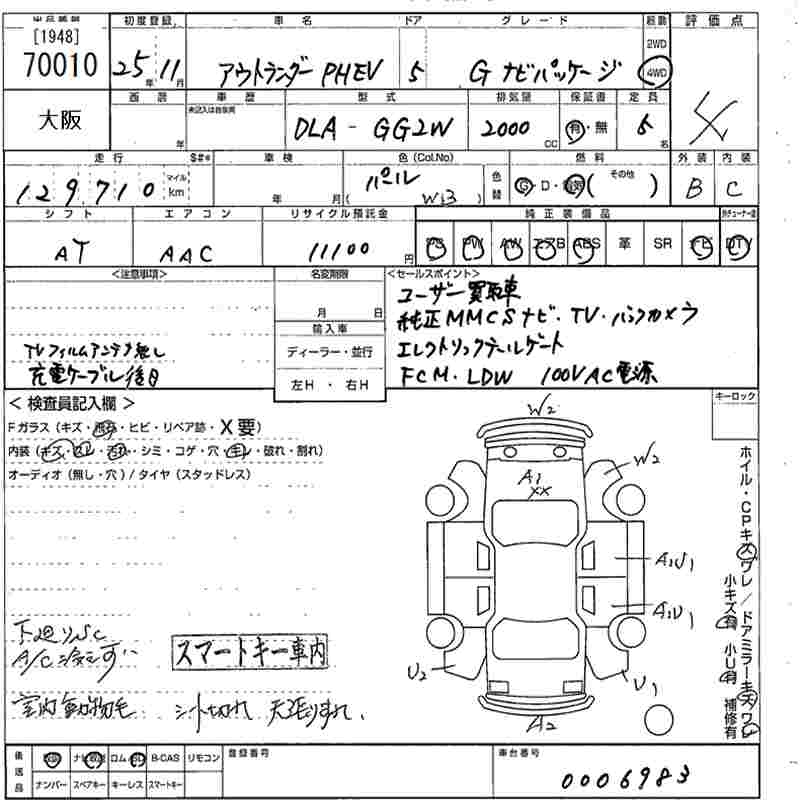 出品番号 初度登録 車名 ドア グレード 駆動 評価点
[1948] 70010 25年 11月 アウトランダーPHEV 5 G ナビパッケージ 2WD 4WD 4
大阪 西暦 年 車歴 未記入は自家用 型式 DLA-GG2W 排気量 2000 CC 保証書 有・無 定員 5名
走行 S#* 車検 色(Col.No) 燃料 外装 内装
129,710 マイル km 年 月 パール ( WB ) 色替 G・D・電気( その他 ) B C
シフト エアコン リサイクル預託金 純正装備品
AT AAC 11100円 PS PW AW エアB ABS 革 SR ナビ DTV
<注意事項> 名変期限 <セールスポイント>
月 日 ユーザー買取車
輸入車 純正MMCSナビ・TV・バックカメラ
TVフィルムアンテナ無し ディーラー・並行 エレクトリックテールゲート
充電ケーブル後日 左H・右H FCM・LDW 100VAC電源
<検査員記入欄> キーロック
Fガラス(キズ・飛石・ヒビ・リペア跡・X要)
内装(キズ・スレ・汚れ・シミ・コゲ・穴・毛・破れ・割れ)
オーディオ(無し・穴)/タイヤ(スタッドレス)
W2
A1 XX W2
A1U1
A1U1
U2 U1
A2
ホイル・CPキズワレ/ドアミラーキズワレ
小キズ有 小U有 補修有
下廻りSC
スマートキー車内
室内動物毛 シート切れ 天張りすれ、
後送品 ナビ取説 ロム・SD B-CAS リモコン 登録番号 車台番号
ナンバー スペアキー キーレス スマートキー 0006983